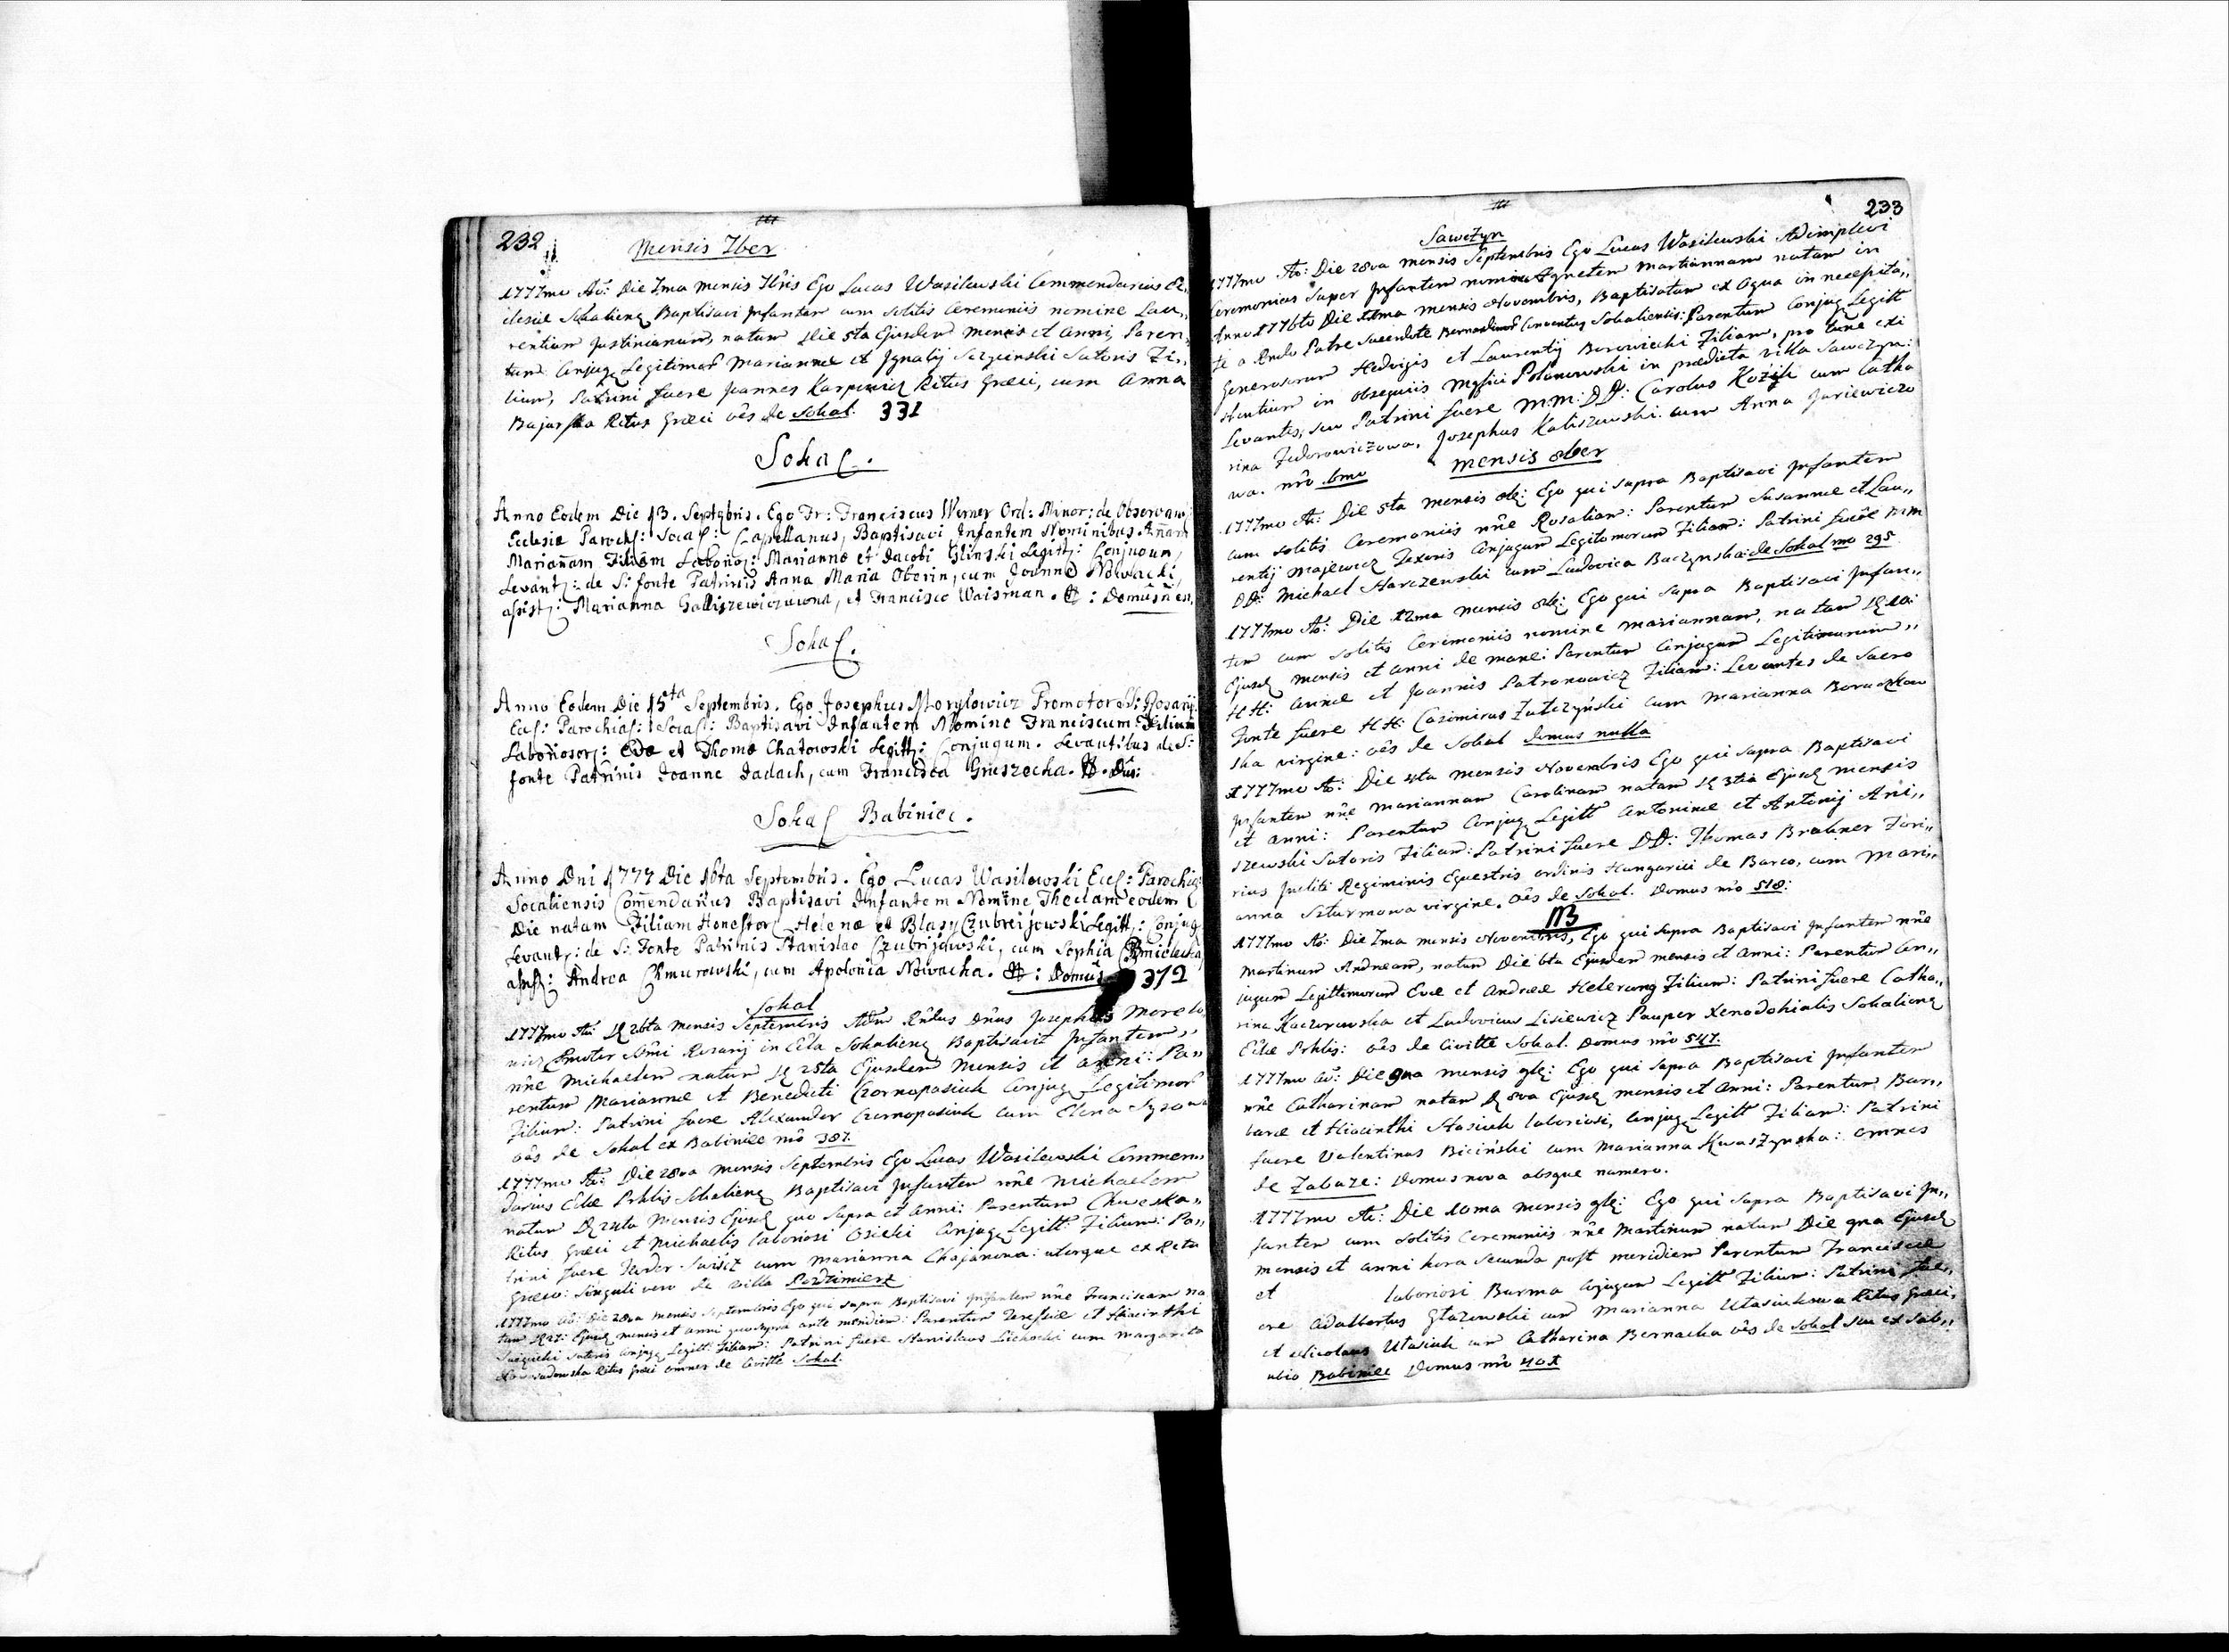 232
Mensis 7ber
1777mo Ao: Die 7ma mensis 7bris Ego Lucas Wasilewski Commendarius Ec„
clesiæ Sokalienς Baptisavi Infantem cum solitis Ceremoniis nomine Lau„
rentium Justinianum, natum Die 5ta Ejusdem mensis et anni, Paren„
tum Conjug Legitimor Mariannæ et Ignatij Sutoris Fi„
lium, Patrini fuere Joannes Karpowicz Ritus Græci, cum Anna
Ritus Græci oēs de Sokal. 331
Sokal.
Anno Eodem Die 13. Septębris. Ego Fr: Franciscus Werner Ord: Minor: de Observan:
Ecclesiæ Paroch: Socal: Capellanus, Baptisavi Infantem Nominibus Annam
Mariañam Filiam Laborios: Mariannæ et Jacobi Glinski Legitt: Conjugum,
Levant: de S: fonte Patrinis Anna Maria Oberin, cum Joanne Nowacki,
assist: Marianna et Francisco Waisman. : Domus
Sokal.
Anno Eodem Die 15ta Septembris. Ego Josephus Morylowicz Promotor SS: Rosarij
Ecl: Parochial: Socal: Baptisavi Infantem Nomine Franciscum Filium
Laboriosor: Evæ et Thomæ Chatowski Legitt: Conjugum. Levantibus de S:
fonte Patrinis Joanne Jadach, cum Francisca Gruszecka.
Sokal Babiniec.
Anno Dni 1777 Die 16ta Septembris. Ego Lucas Wasilewski Eccl: Parochia:
Socaliensis Comendarius Baptisavi Infantem Nomine Theclam eodem
Die natam Filiam Honestor Helenæ et Blasy Legitt: Conjug
Levant: de S: Fonte Patrinis Stanislao cum Sophia
assist: Andrea Chmurowski, cum Apolonia Nowacka. : Domus 372
Sokal
1777mo Ao: 26ta mensis Septembris Adm Rndus Dnus Josephus Morelo
wicz Pmotor Ssmi Rosarij in Ecla Sokalienς Baptisavit Infantem„
nñe Michaelem natum 25ta Ejusdem Mensis et anni: Pa„
rentum Mariannæ et Benedicti Czornopasiuk Conjug Legitimor
Filium: Patrini fuere Alexander Czornopasiuk cum Elena
oēs de Sokal ex Babiniec nrō 387.
1777mo Ao: Die 28va mensis Septembris Ego Lucas Wasilewski Commen„
darius Eclæ Prhlis Sokalienς Baptisavi Infantem nñe Michaelem
natum 24ta Mensis Ejusd quo supra et anni: Parentum
Ritus Græci et Michaelis laboriosi Osicki Conjug Legitt: Filium: Pa„
trini fuere cum Marianna uterque ex Ritu
Græco: Singuli vero de villa
1777mo Ao: Die 28va mensis Septembris Ego qui supra Baptisavi Infantem nñe Franciscam na
tam 27: Ejusd mensis et anni ante meridiem: Parentum Teresiæ et Hiacinthi
Sutoris Conjug Legitt: Filiam: Patrini fuere Stanislaus cum Margarita
Ritus Græci omnes de Civitte Sokal.
233
Sawczyn
1777mo Ao: Die 28va mensis Septembris Ego Lucas Wasilewski Adimplevi
Ceremonias super Infantem nomine Agnetem Martiannam natam in
Anno 1776to Die mensis Novembris, Baptisatam ex Aqua in necessita„
te a Rndo Patre Sacerdote Bernardinor Conventus Sokaliensis: Parentum Conjug Legitt
Generosorum Hedvigis et Laurentij Borowiecki Filiam, pro tunc exi
stentium in obsequiis Mgfici Polanowski in prædicta villa Sawczyn:
Levantes, seu Patrini fuere M.M: DD: Carolus cum Catha
rina Fedorowiczowa, Josephus Kaliszewski cum Anna Juriewiczo
wa. nrō 6mo
mensis 8ber
1777mo Ao: Die 5ta mensis 8br: Ego qui supra Baptisavi Infantem
cum solitis Ceremoniis nñe Rosaliam: Parentum Susannæ et Lau„
rentij Majewicz Textoris Conjugum Legitimorum Filiam: Patrini fuēre MM
DD: Michael Harczewski cum Ludovica Baczynska: de Sokal nro 295
1777mo Ao: Die 12ma mensis 8br: Ego qui supra Baptisavi Infan„
tem cum solitis Ceremoniis nomine Mariannam, natam 10:
Ejusd mensis et anni de mane: Parentum Conjugum Legitimorum„
HH: Annæ et Joannis Patronowicz Filiam: Levantes de Sacro
Fonte fuere HH: Casimirus cum Marianna
ska virgine: oēs de Sokal domus nulla
1777mo Ao: Die 4ta mensis Novembris Ego qui supra Baptisavi
Infantem nñe Mariannam Carolinam natam 3tia Ejusd mensis
et anni: Parentum Conjug Legitt Antoninæ et Antonij Ani„
szewski Sutoris Filiam: Patrini fuere DD: Thomas Brabner Fori„
rius Militi Regiminis Equestris ordinis Hungarici de Barco, cum Mari„
anna Szturmowa virgine. oēs de Sokal. Domus nrō 518:
NB
1777mo Ao: Die 7ma mensis Novembris, Ego qui supra Baptisavi Infantem nñe
Martinum Andream, natum Die 6ta Ejusdem mensis et anni: Parentum Con„
jugum Legittimorum Evæ et Andreæ Helerung Filium: Patrini fuere Catha„
rina Kaczorowska et Ludovicus Lisiewicz Pauper Xenodohialis Sokalienς
Eclæ Prhlis: oēs de Civitte Sokal. Domus nrō 547.
1777mo Ao: Die 9na mensis 9br: Ego qui supra Baptisavi Infantem
nñe Catharinam natam 8va Ejusd mensis et anni: Parentum Bar„
baræ et Hiacinthi Stasiuk laboriosi, Conjug Legitt Filiam: Patrini
fuere Valentinus Biciński cum Marianna Kwaszynska: omnes
de Zabuze: Domus nova absque numero.
1777mo Ao: Die 10ma mensis 9br: Ego qui supra Baptisavi In„
fantem cum solitis Ceremoniis nñe Martinum natum Die 9na Ejusd
mensis et anni hora secunda post meridiem Parentum Franciscæ
et laboriosi Burma Conjugum Legitt Filium: Patrini fue„
ere Adalbertus Głazewski cum Marianna Utasiukowa Ritus Græci,
et Nicolaus Utasiuk cum Catharina Bernacka oēs de Sokal seu ex Sub„
urbio Babiniec Domus nrō 401